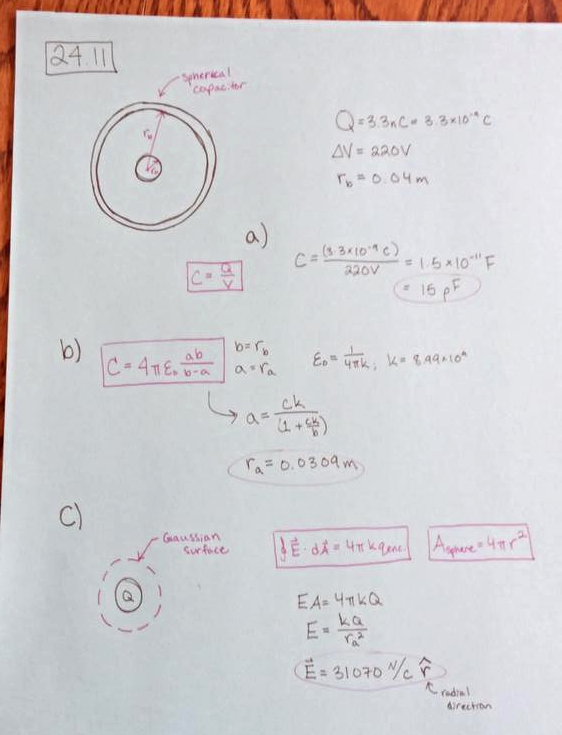 24.11
spherical
capacitor
r_b
r_a
Q = 3.3nC = 3.3×10⁻⁹ C
ΔV = 220V
r_b = 0.04m
a)
C = Q/V
C = (3.3×10⁻⁹ C)/220V = 1.5×10⁻¹¹ F
= 15 pF
b)
C = 4πε₀ ab/b-a
b = r_b
a = r_a
ε₀ = 1/4πk ; k = 8.99×10⁹
a = ck/(1 + ck/b)
r_a = 0.0309m
C)
Gaussian
surface
Q
∮E⃗ · dA⃗ = 4πkq_enc
A_sphere = 4πr²
EA = 4πkQ
E = kQ/r_a²
E⃗ = 31070 N/C r̂
radial
direction